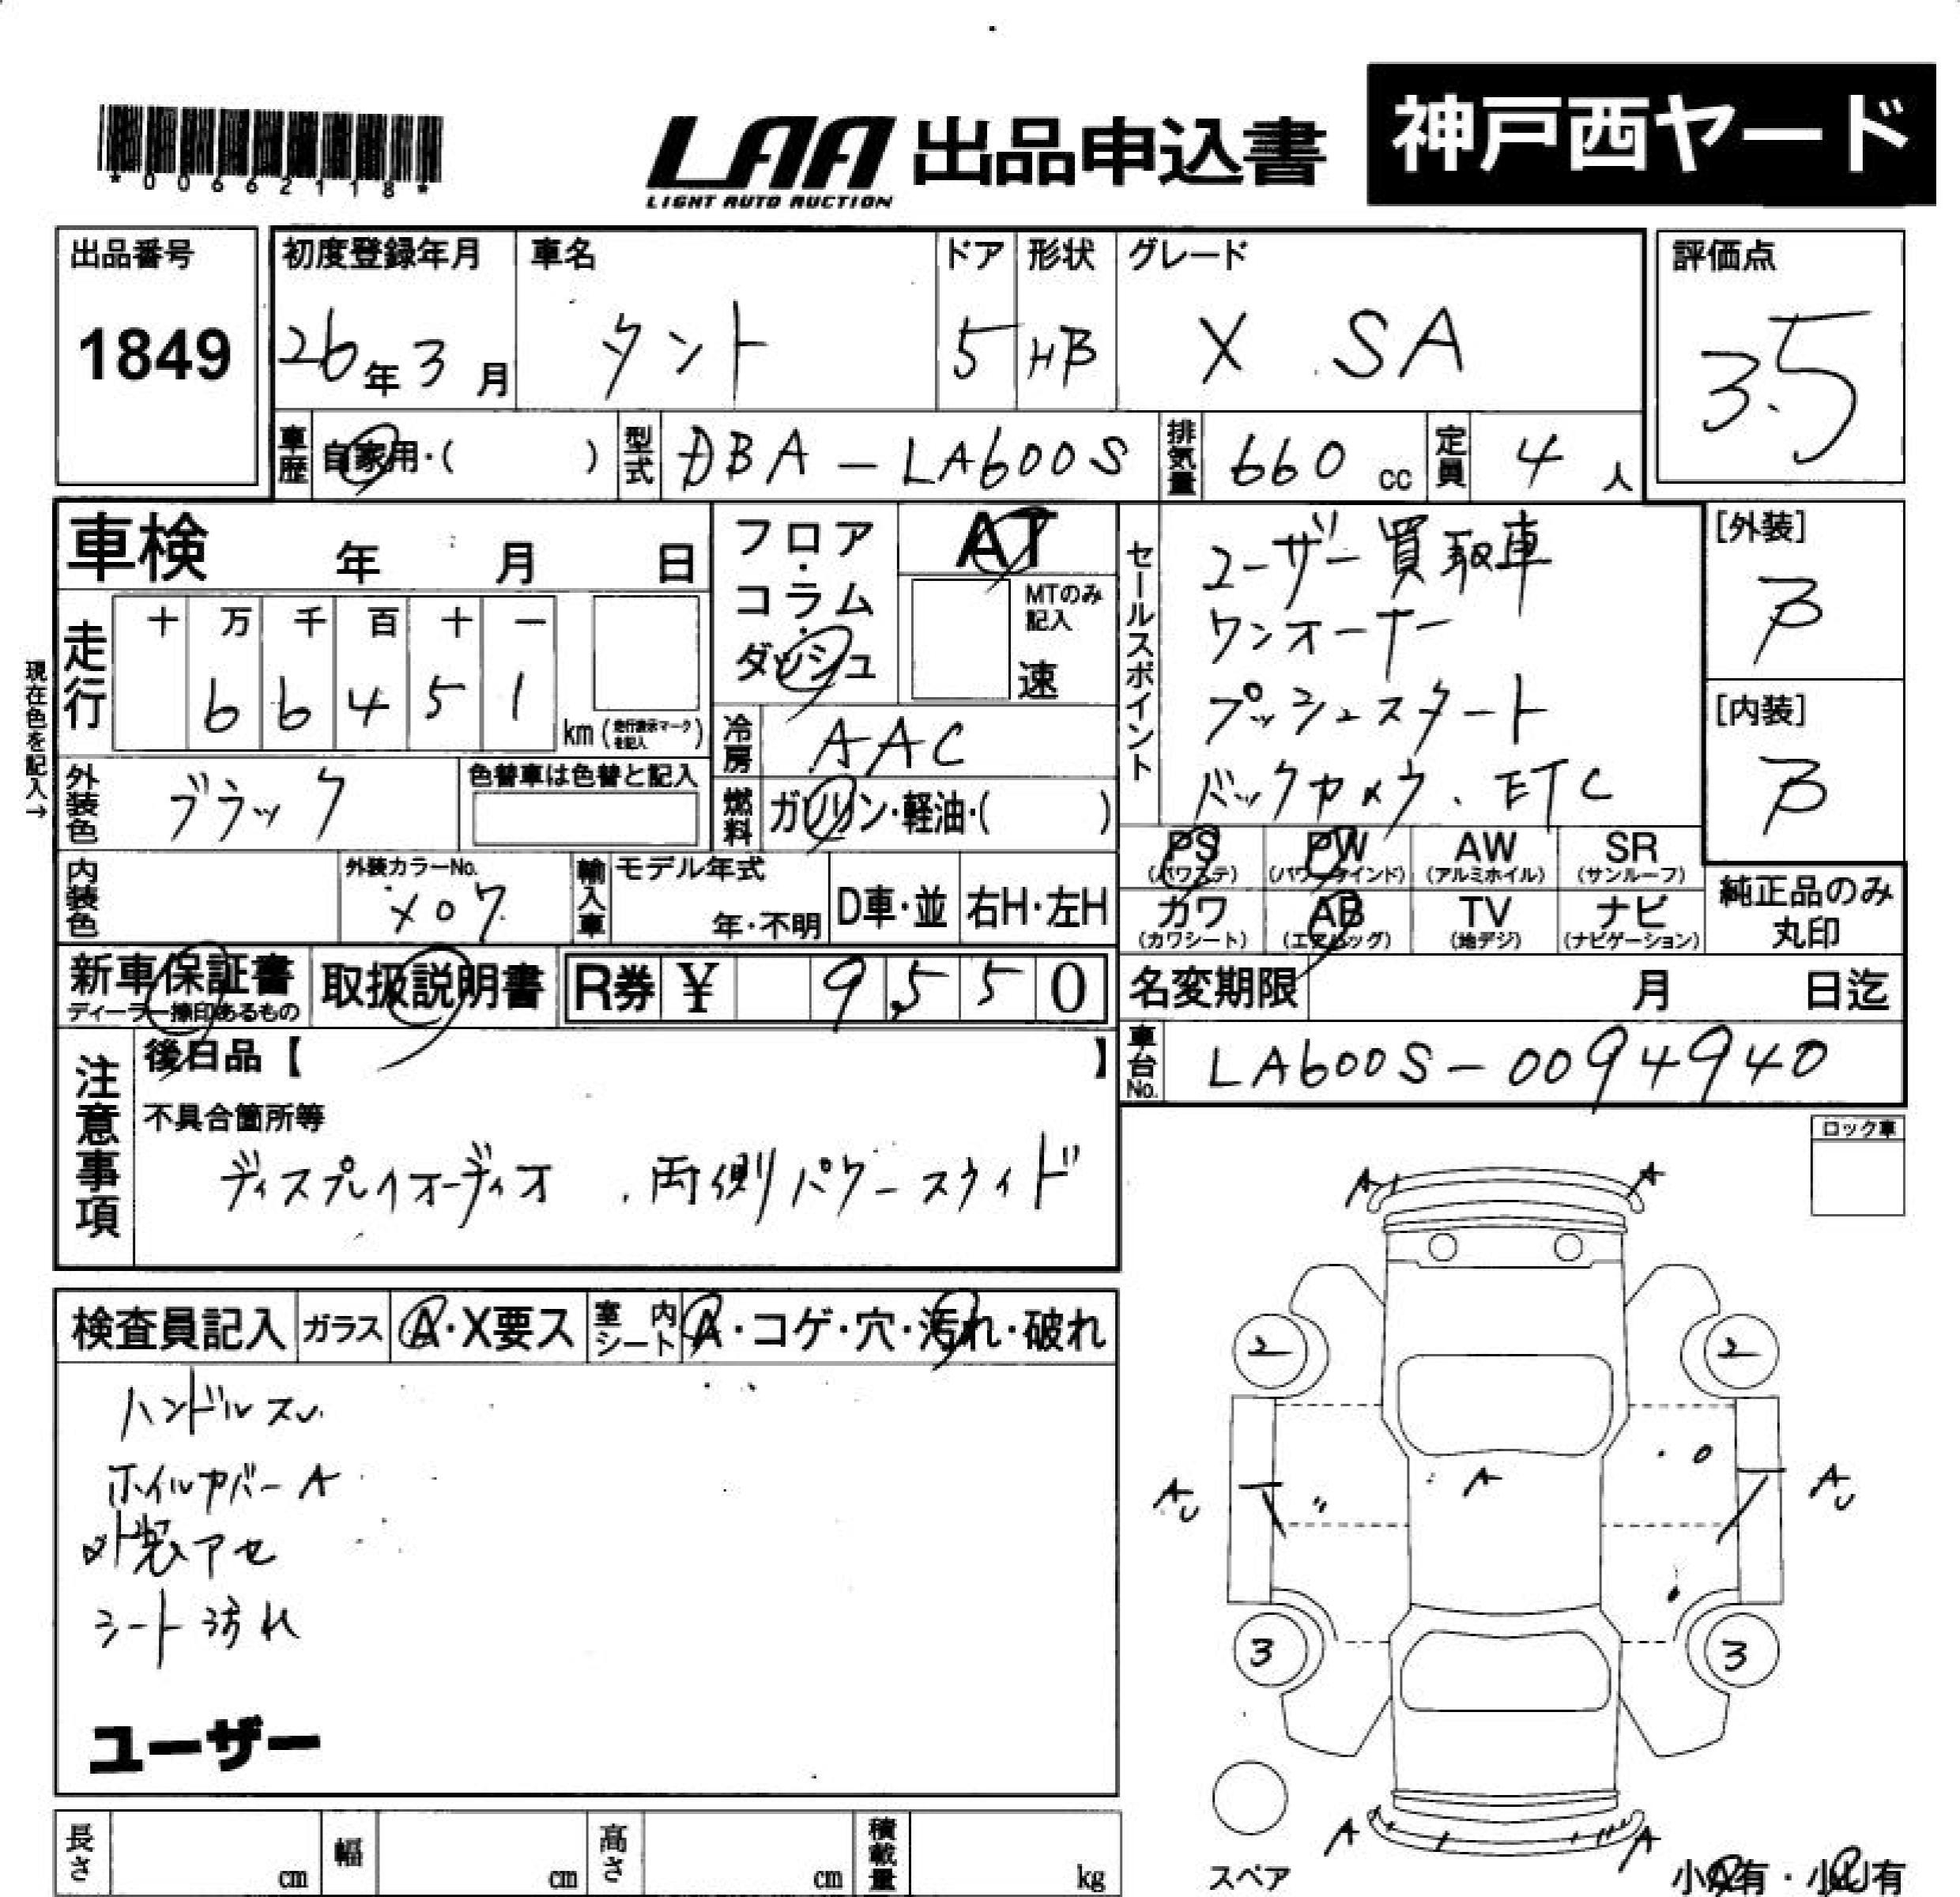 *00662118*
LAA 出品申込書 神戸西ヤード
LIGHT AUTO AUCTION
出品番号 初度登録年月 車名 ドア 形状 グレード 評価点
1849 26年3月 タント 5 HB X SA 3.5
車歴 自家用・( ) 型式 DBA-LA600S 排気量 660 cc 定員 4 人
車検 年 月 日 フロア・コラム・ダッシュ AT
MTのみ記入 速
現在色を記入→
走行 十 万 千 百 十 一
6 6 4 5 1 km (走行表示マークを記入)
冷房 AAC
セールスポイント
ユーザー買取車
ワンオーナー
プッシュスタート
バックカメラ、ETC
[外装]
B
[内装]
B
外装色 ブラック 色替車は色替と記入 燃料 ガソリン・軽油・( )
PS (パワステ) PW (パワーウインド) AW (アルミホイル) SR (サンルーフ)
カワ (カワシート) AB (エアバッグ) TV (地デジ) ナビ (ナビゲーション)
純正品のみ丸印
内装色 外装カラーNo. X07 輸入車 モデル年式 年・不明 D車・並 右H・左H
新車保証書 ディーラー捺印あるもの 取扱説明書 R券 ¥ 9,550 名変期限 月 日迄
車台No. LA600S-0094940
注意事項
後日品【 】
不具合箇所等
ディスプレイオーディオ 、両側パワースライド
ロック車
検査員記入 ガラス A・X要ス 室内シート A・コゲ・穴・汚れ・破れ
ハンドルスレ
ホイルカバーA
内装アセ
シート汚れ
ユーザー
A A
2 2
AU A AU
3 3
A A
スペア
小凹有・小凹有
長さ cm 幅 cm 高さ cm 積載量 kg